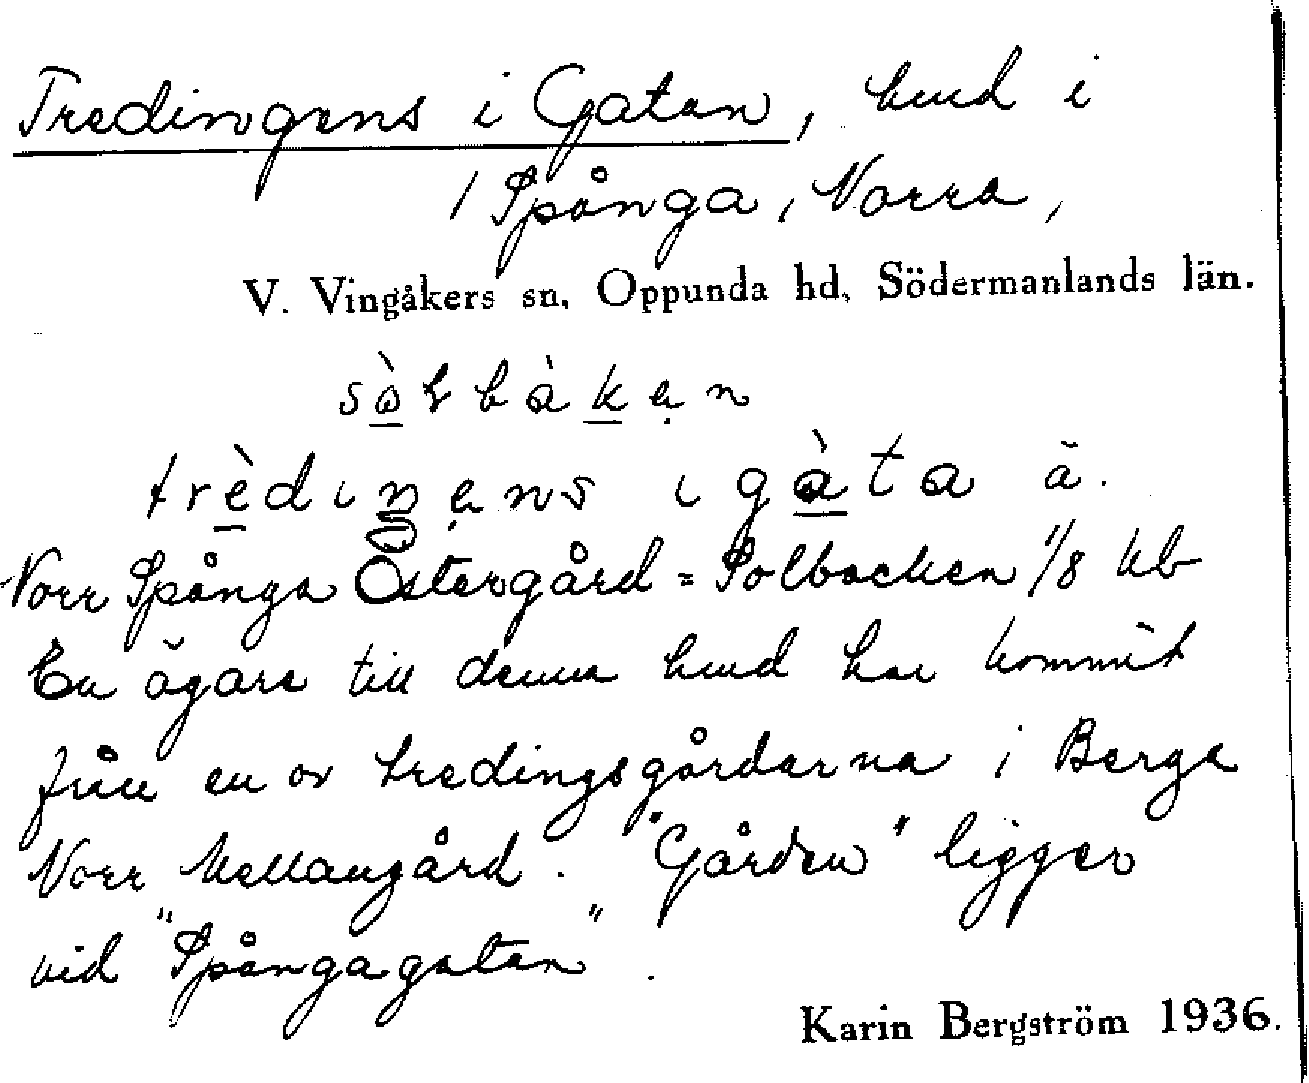 Tredingens i Gatan, hmd i
/ Spånga, Norra,
V. Vingåkers sn, Oppunda hd, Södermanlands län.
sòlbàkan
trèdiŋens i gàta ä.
Norr Spånga Östergård = Solbacken 1/8 kb
En ägare till denna hmd har kommit
från en av tredingsgårdarna i Berga
Norr Mellangård. "Gården" ligger
vid "Spångagatan".
Karin Bergström 1936.